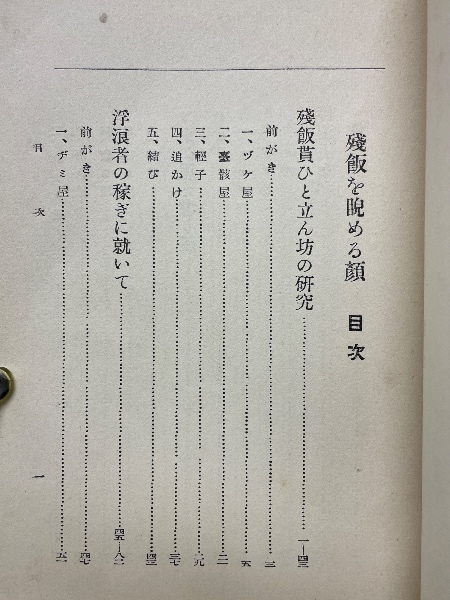 殘飯を睨める顏 目次
殘飯貰ひと立ん坊の硏究……一―四三
前がき……三
一、ヅケ屋……五
二、臺骸屋……二一
三、輕子……二九
四、追かけ……三七
五、結び……四三
浮浪者の稼ぎに就いて……四五―八二
前がき……四七
一、ヂミ屋……五一
目次
一